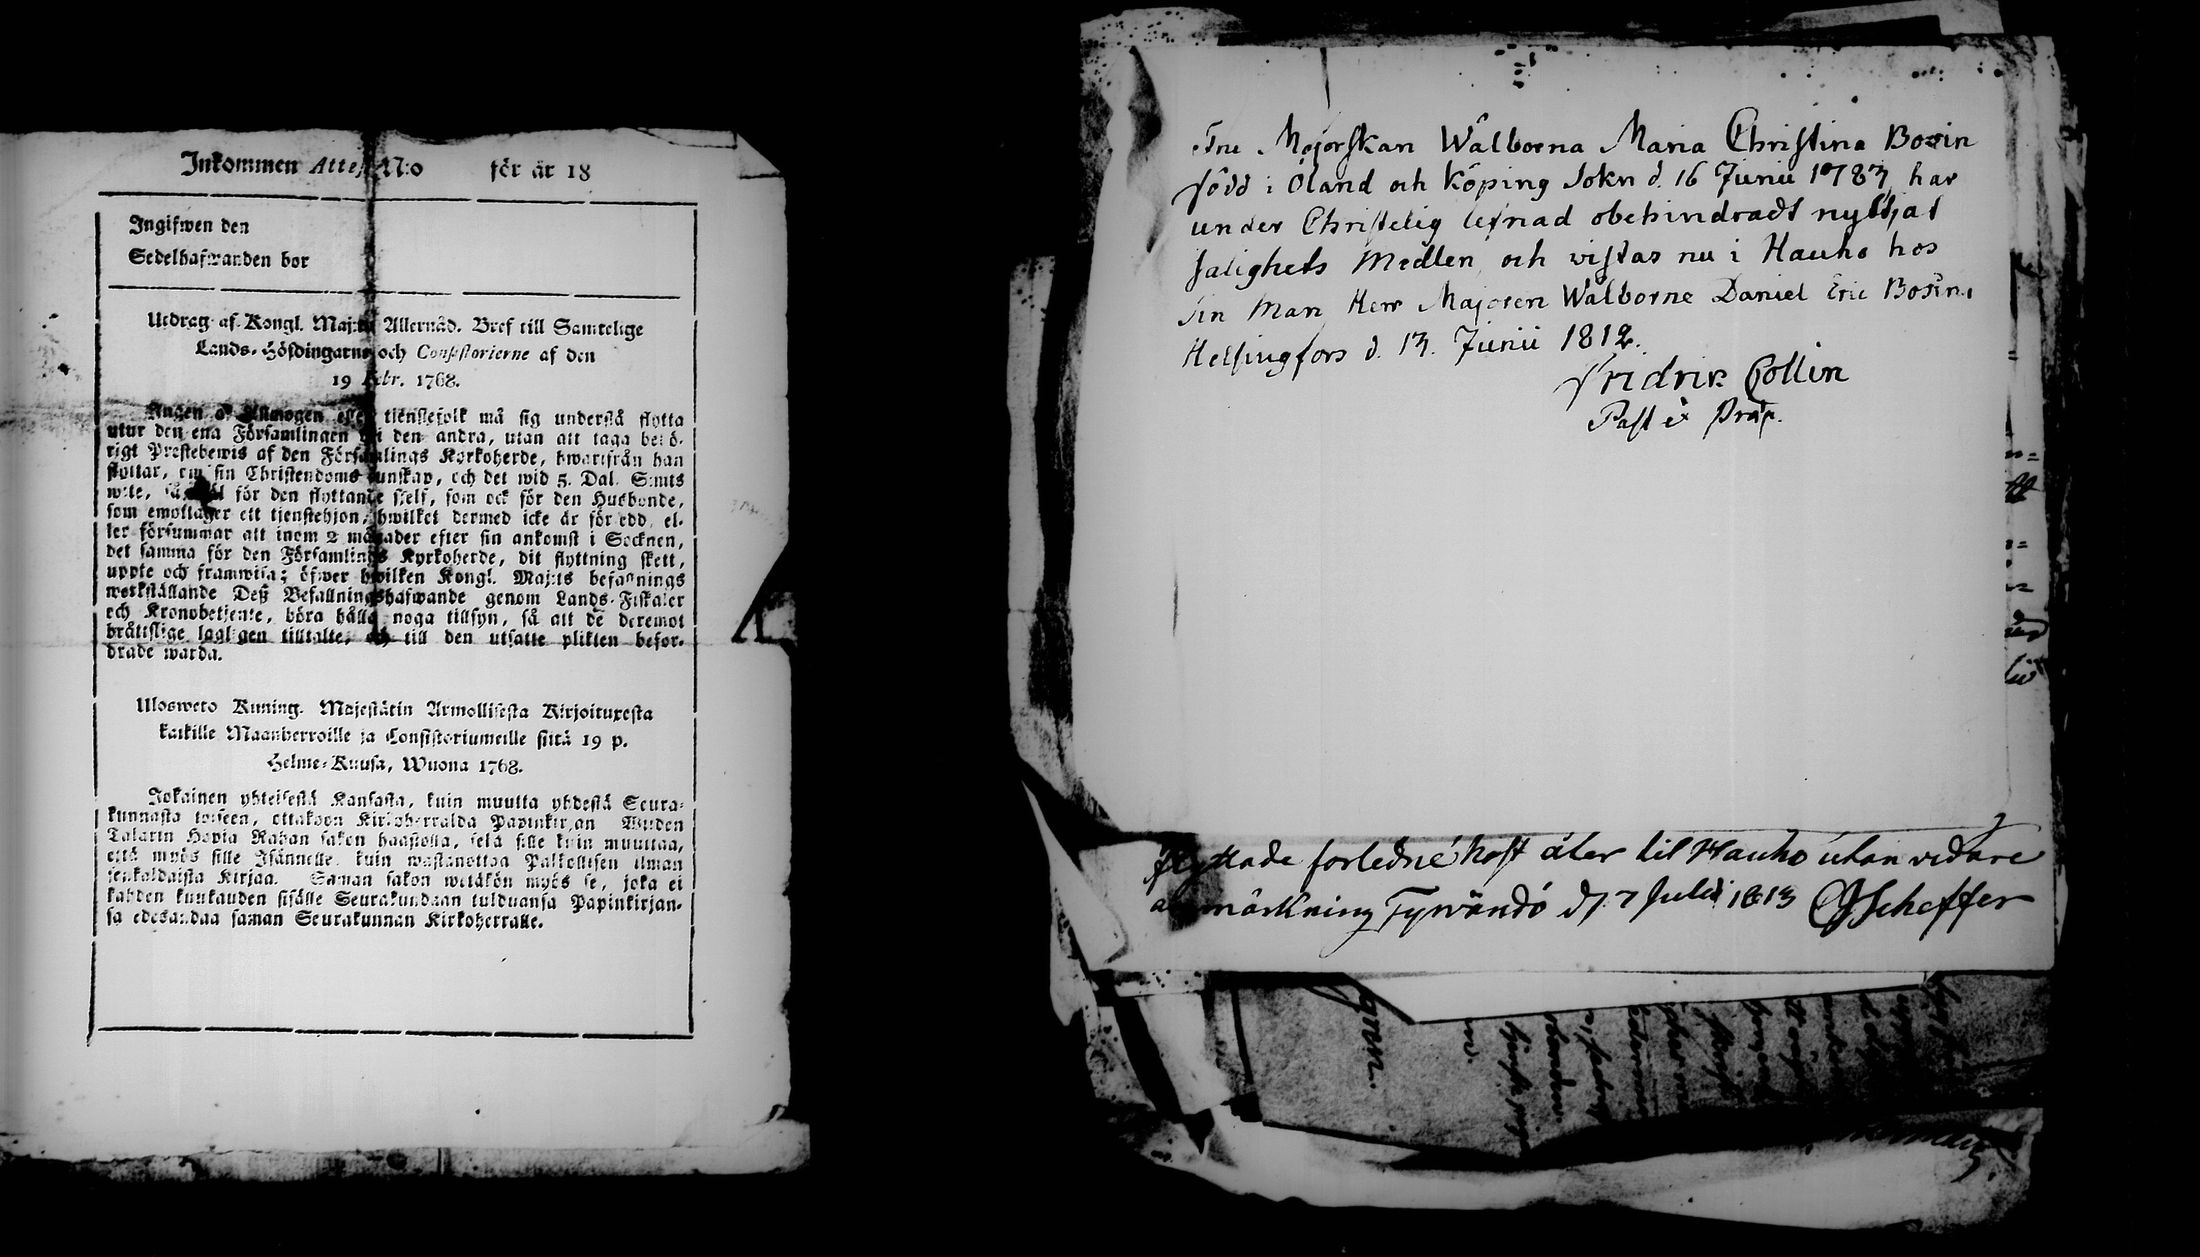 Inkommen Attest N:o för år 18
Ingifwen den
Sedelhafwanden bor
Utdrag af Kongl. Maj:ts Allernåd. Bref till Samtelige
Lands-Höfdingarne och Consistorierne af den
19 Febr. 1768.
Ingen af Allmogen eller tienstefolk må sig understå flytta
utur den ena Församlingen til den andra, utan att taga behö-
rigt Prestebewis af den Församlings Kyrkoherde, hwarifrån han
flyttar, om sin Christendoms kunskap, och det wid 5. Dal. S:mts
wite, så wäl för den flyttande sjelf, som ock för den Husbonde,
som emottager ett tjenstehjon, hwilket dermed icke är försedd, el-
ler försummar att inom 2 månader efter sin ankomst i Socknen,
det samma för den Församlings Kyrkoherde, dit flyttning skett,
uppte och framwisa; öfwer hwilken Kongl. Maj:ts befallnings
werkställande Deß Befallningshafwande genom Lands-Fiskaler
och Kronobetjente, böra hålla noga tillsyn, så att de deremot
bråttslige lagligen tilltalte, och till den utsatte plikten befor-
drade warda.
Ulosweto Kuning. Majestätin Armollisesta Kirjoituxesta
kaikille Maanherroille ja Consistoriumeille siitä 19 p.
Helme-Kuusa, Wuona 1768.
Jokainen yhteisestä Kansasta, kuin muutta yhdestä Seura-
kunnasta toiseen, ottakoon Kirkoherralda Papinkirjan Wiiden
Talarin Hopia Rahan sakon haastolla, sekä sille kuin muuttaa,
että myös sille Isännelle, kuin wastanottaa Palkollisen ilman
senkaldaista Kirjaa. Saman sakon wetäkön myös se, joka ei
kahden kuukauden sisälle Seurakundaan tulduansa Papinkirjan-
sa edesandaa saman Seurakunnan Kirkoherralle.
Fru Majorskan Wälborna Maria Christina Bosin
född i Öland och Köping Sokn d. 16 Junii 1783, har
under Christelig lefnad obehindradt nyttjat
salighets Medlen, och vistas nu i Hauho hos
sin Man Herr Majoren Wälborne Daniel Eric Bosin.
Helsingfors d. 13. Junii 1812.
Fridrik Collin
Past et Præp.
flyttade forledne höst åter til Hauho utan vidare
anmärkning Tyrvändö d. 7 Julii 1813 Scheffer